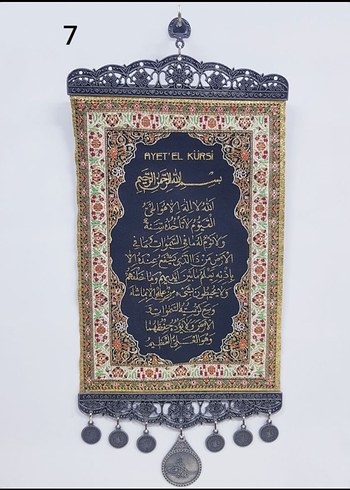 7
AYET'EL KÜRSİ
بسم الله الرحمن الرحيم
الله لا اله الا هو الحي
القيوم لا تأخذه سنة
ولا نوم له ما في السموات وما في
الارض من ذا الذي يشفع عنده الا
باذنه يعلم ما بين ايديهم وما خلفهم
ولا يحيطون بشيء من علمه الا بما شاء
وسع كرسيه السموات
والارض ولا يؤده حفظهما
وهو العلي العظيم